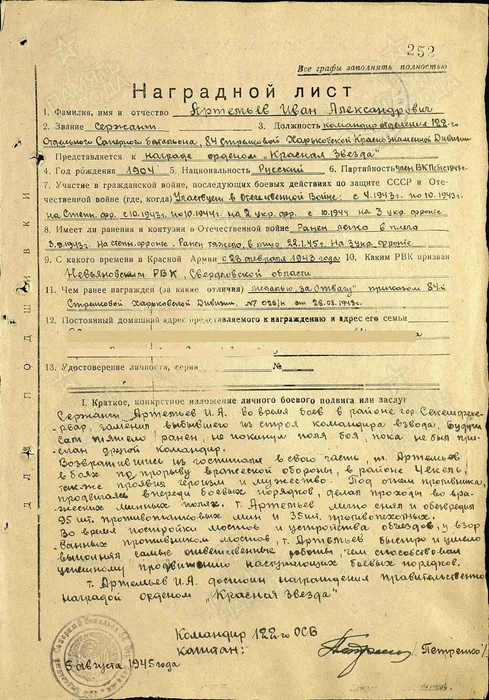 252
Все графы заполнять полностью
Наградной лист
1. Фамилия, имя и отчество Артемьев Иван Александрович
2. Звание Сержант 3. Должность командир отделения 122-го
Отдельного Саперного батальона, 84 Стрелковой Харьковской Краснознаменной Дивизии
Представляется к награде орденом „Красная Звезда"
4. Год рождения 1904 5. Национальность Русский 6. Партийность член ВКП(б) с 1943 г.
7. Участие в гражданской войне, последующих боевых действиях по защите СССР и Оте-
чественной войне (где, когда) Участвует в отечественной Войне: с 4.1943г. по 10.1943г.
на Степн. фр. с 10.1943г. по 10.1944г. на 2 укр. фр. с 10.1944 на 3 укр. фронте
8. Имеет ли ранения и контузии в Отечественной войне Ранен легко в плечо
3.9.1943г. на степн. фронте. Ранен тяжело, в плечо 22.1.45г. на 3 укр. фронте
9. С какого времени в Красной Армии с 23 февраля 1943 года 10. Каким РВК призван
Невьяновским РВК, Свердловской области
11. Чем ранее награжден (за какие отличия) медалью „за Отвагу" приказом 84-й
Стрелковой Харьковской Дивизии. № 026/н от 28.09.1943г.
12. Постоянный домашний адрес представляемого к награждению и адрес его семьи
13. Удостоверение личности, серия № 
ДЛЯ ПОДШИВКИ
I. Краткое, конкретное изложение личного боевого подвига или заслуг
Сержант Артемьев И.А. во время боев в районе гор. Секешфехе-
рвар, заменив выбывшего из строя командира взвода, будучи
сам тяжело ранен, не покинул поля боя, пока не был при-
слан другой командир.
Возвратившись из госпиталя в свою часть, т. Артемьев
в боях по прорыву вражеской обороны, в районе Чекель,
также проявил героизм и мужество. Под огнем противника,
продвигаясь впереди боевых порядков, делал проходы во вра-
жеских минных полях. т. Артемьев лично снял и обезвредил
95 шт. противотанковых мин и 35 шт. противопехотных.
Во время постройки мостов и устройства объездов, у взор-
ванных противником мостов, т. Артемьев быстро и умело
выполнял самые ответственные работы, чем способствовал
успешному продвижению наступающих боевых порядков.
т. Артемьев И.А. достоин награждения правительственной
наградой орденом „Красная Звезда"
Командир 122-го ОСБ
капитан: /Петренко/
5 августа 1945 года